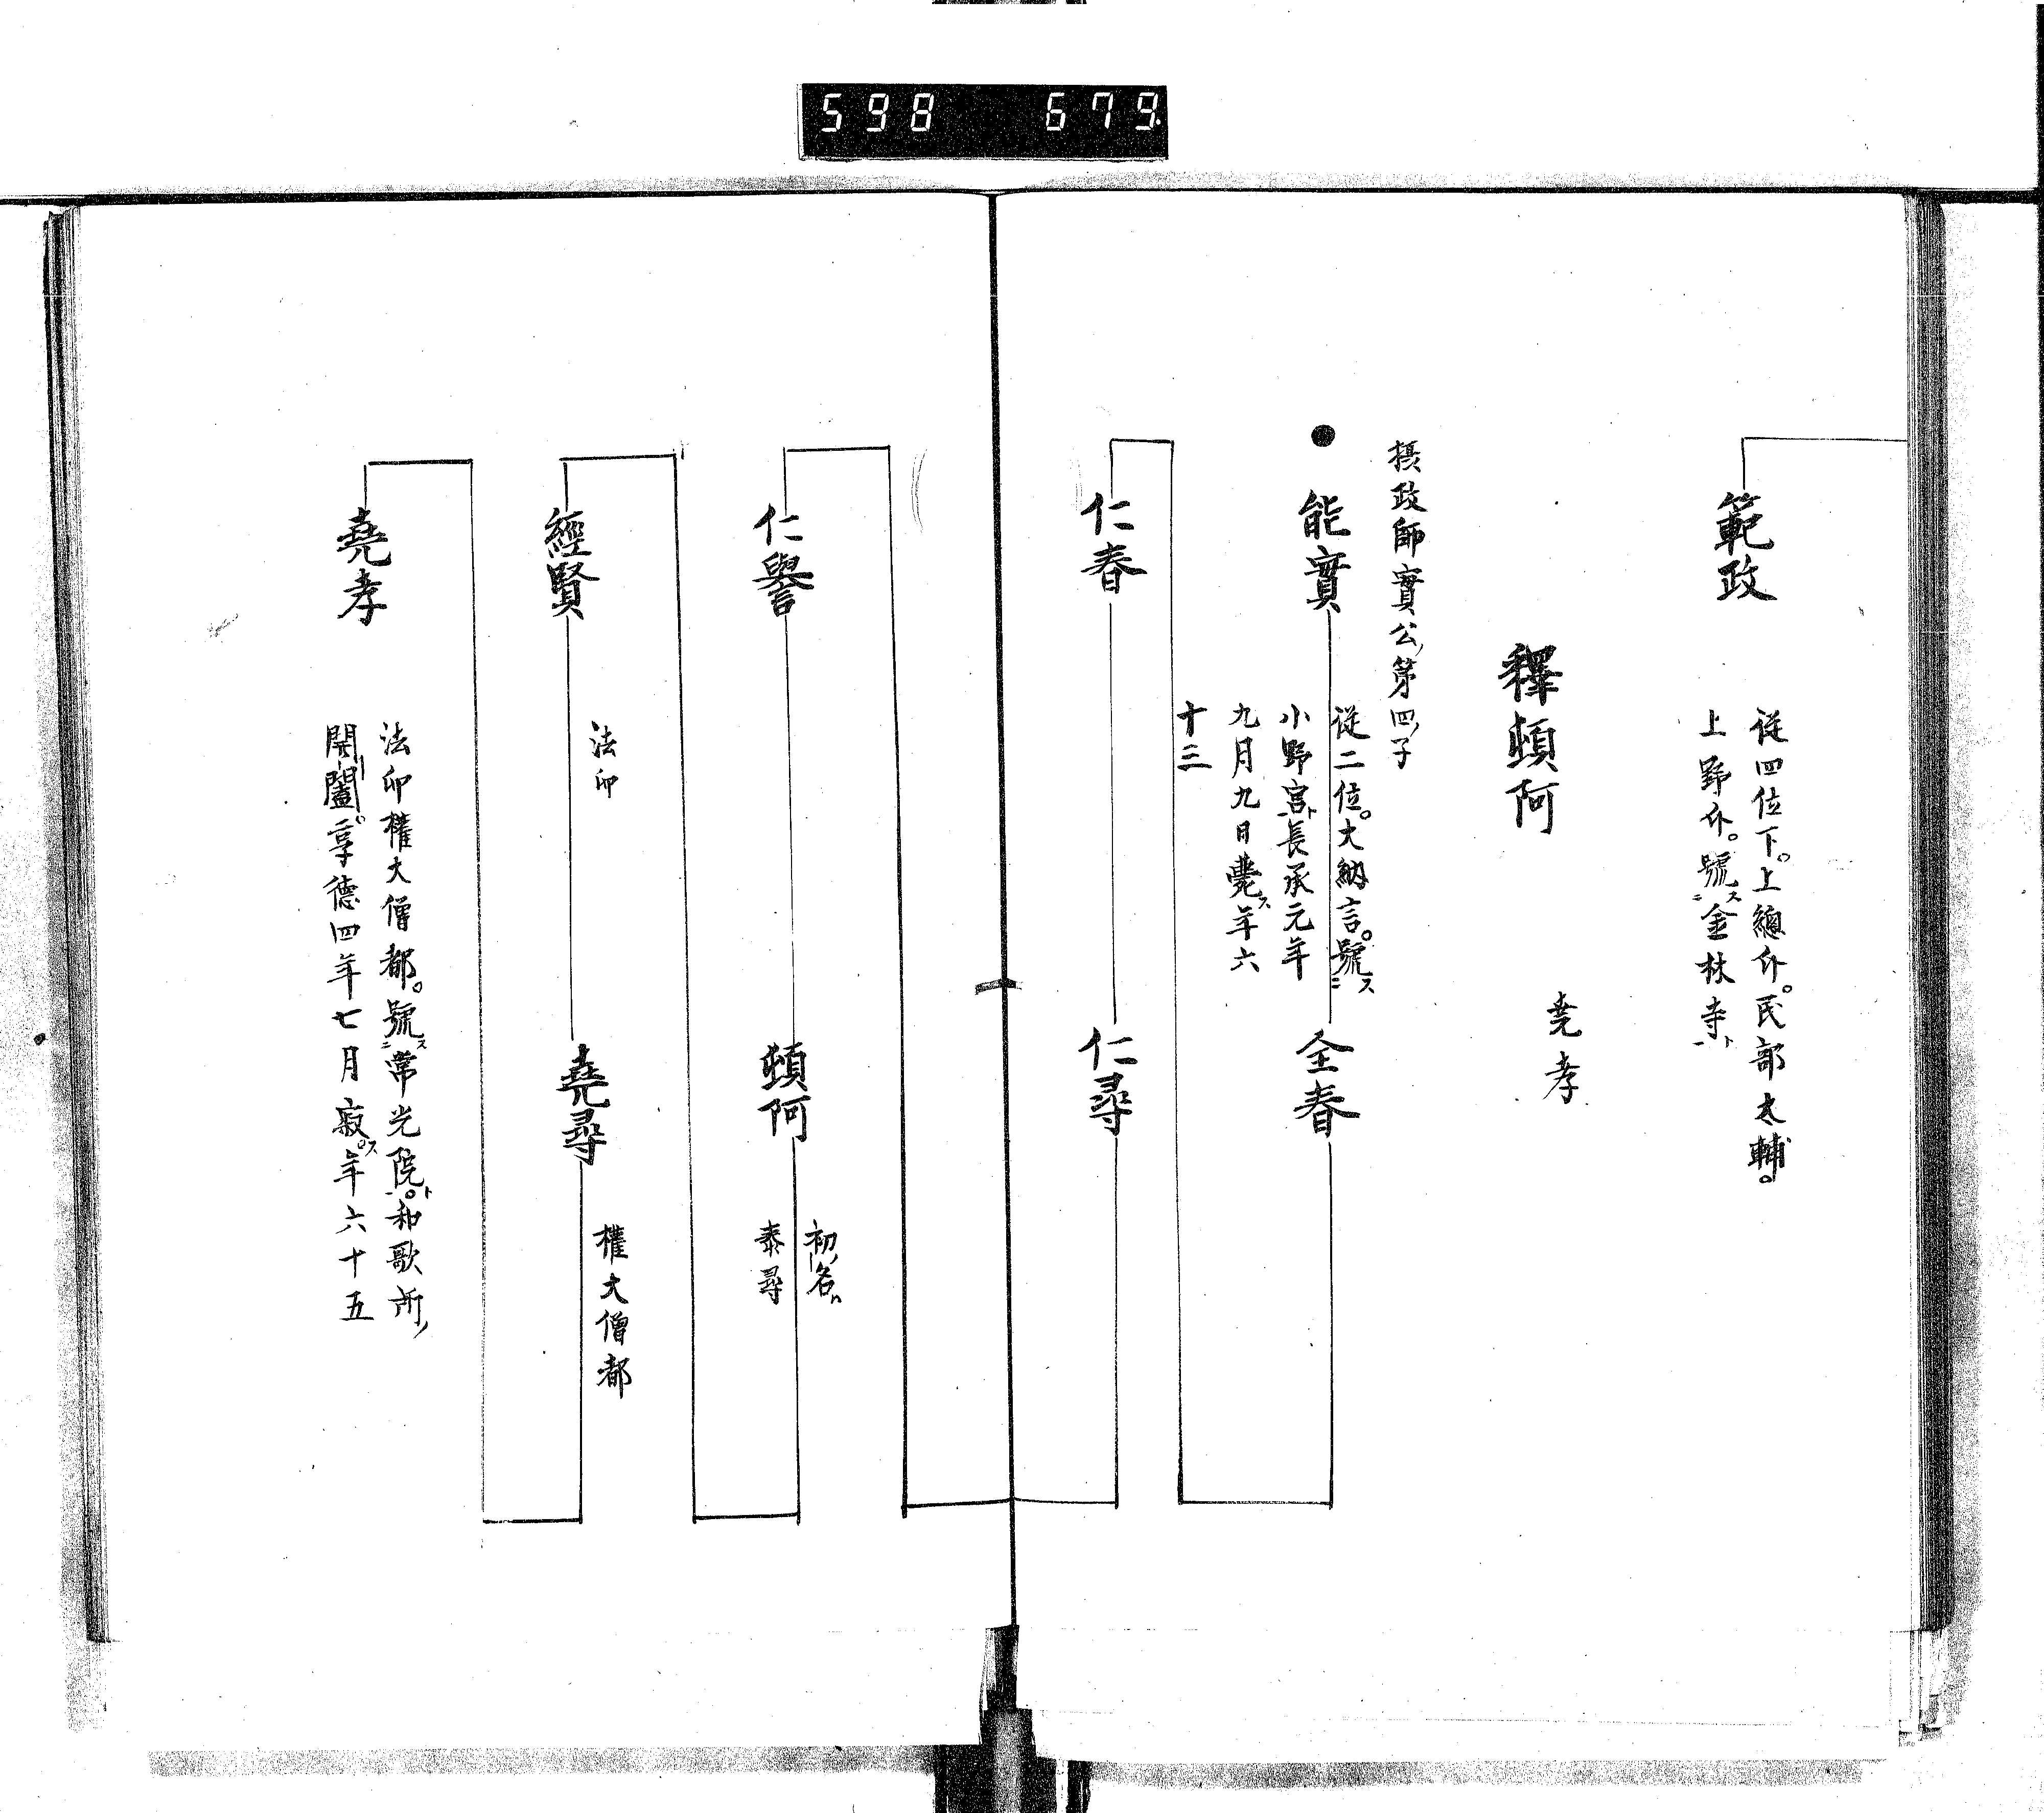 598 679
範政
従四位下。上總介。民部太輔。
上野介。號ス二金林寺ト一
釋頓阿
堯孝
摂政師實公ノ第四ノ子
●能實
従二位。大納言。號ス二
小野宮ト一長承元年
九月九日薨ス年六
十三
全春
仁春
仁尋
仁譽
頓阿
初ノ名ハ
泰尋
經賢
法印
堯尋
權大僧都
堯孝
法印權大僧都。號ス二常光院ト一。和歌所ノ
開闔。享德四年七月寂ス。年六十五